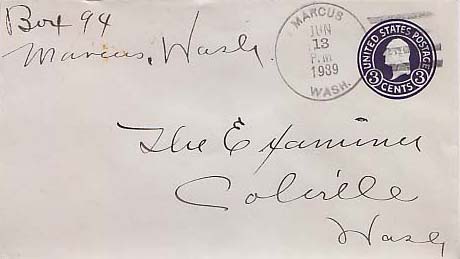 Box 94
Marcus, Wash.
MARCUS
JUN
13
P.M
1939
WASH.
UNITED STATES POSTAGE
3 CENTS 3
The Examiner
Colville
Wash